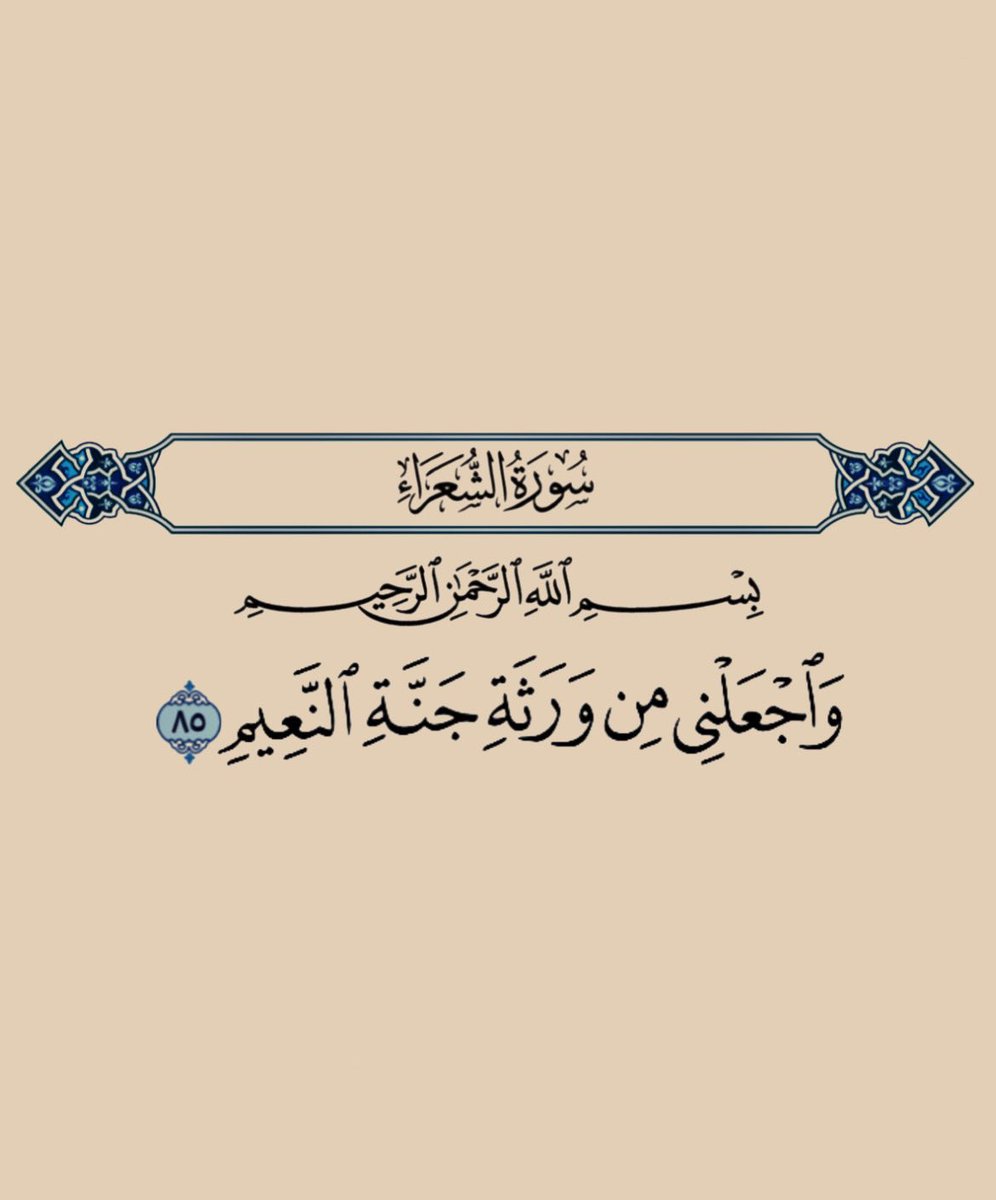 سُورَةُ الشُّعَرَاءِ
بِسْمِ ٱللَّهِ ٱلرَّحْمَٰنِ ٱلرَّحِيمِ
وَٱجْعَلْنِى مِن وَرَثَةِ جَنَّةِ ٱلنَّعِيمِ ٨٥